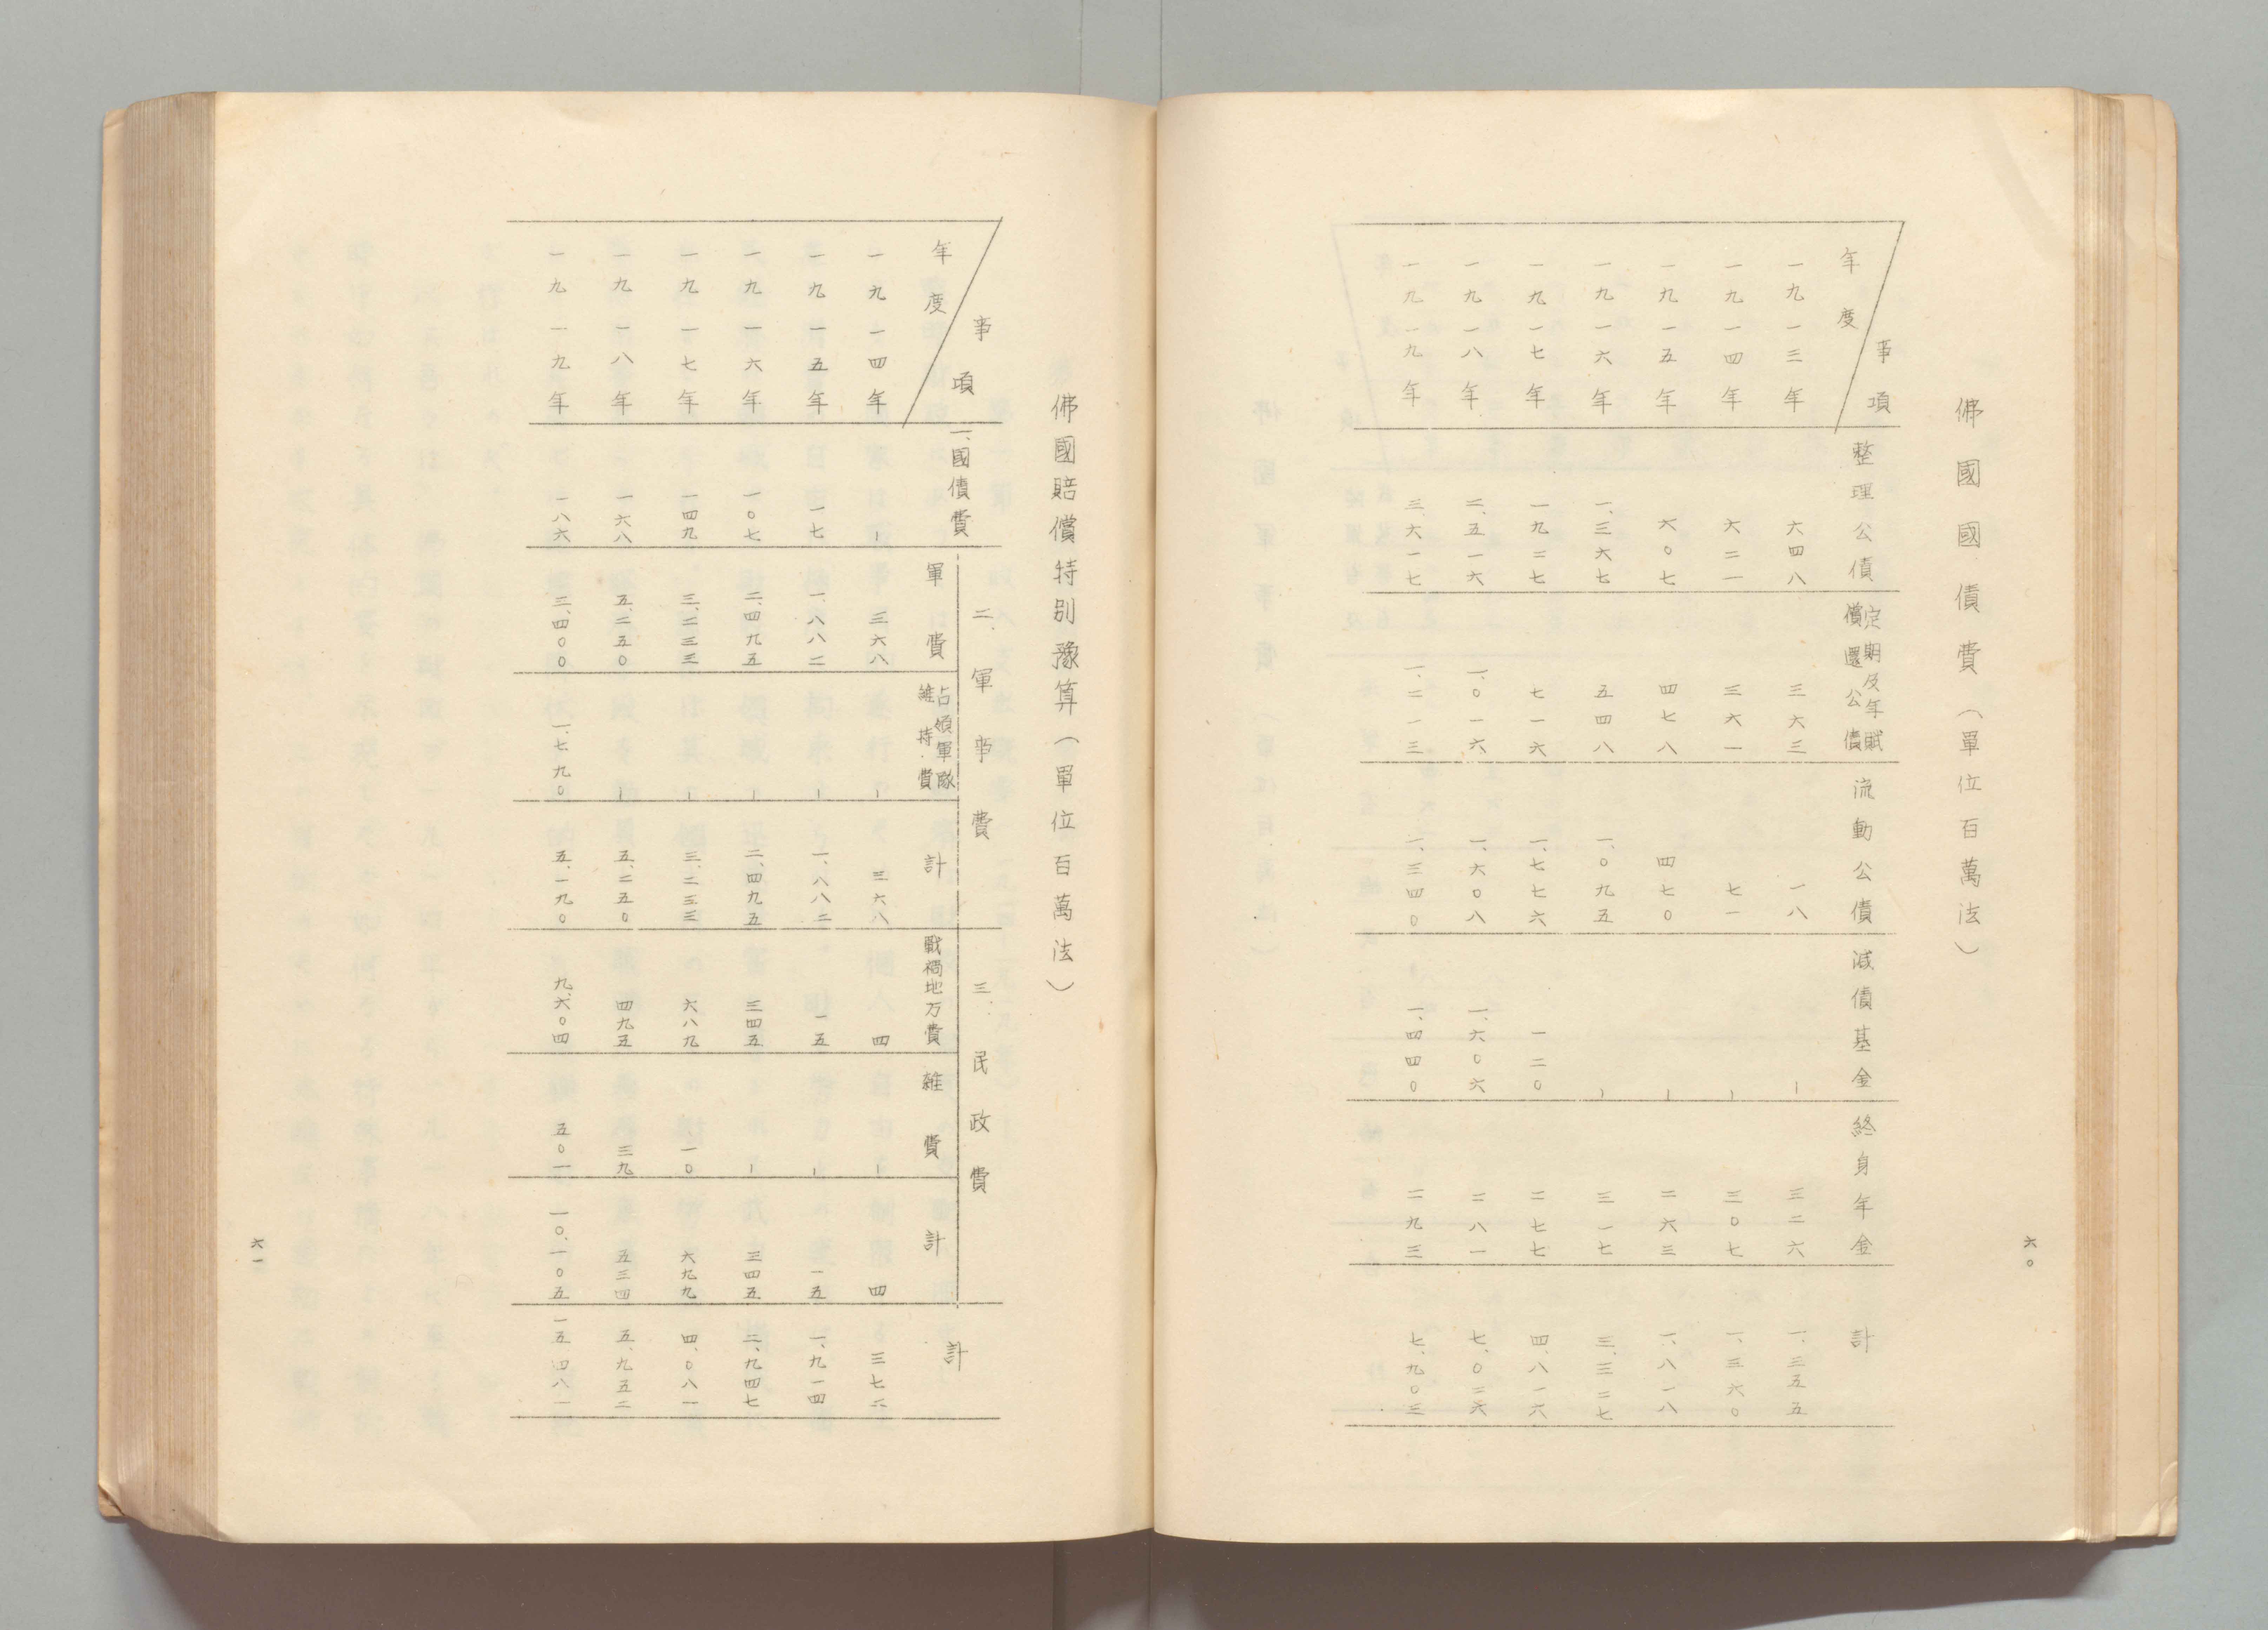 六〇
佛國國債費（單位百萬法）
事項
年度 整理公債 定期及年賦償還公債 流動公債 減債基金 終身年金 計
一九一三年 六四八 三六三 一八 ー 三二六 一、三五五
一九一四年 六二一 三六一 七一 ー 三〇七 一、三六〇
一九一五年 六〇七 四七八 四七〇 ー 二六三 一、八一八
一九一六年 一、三六七 五四八 一、〇九五 ー 三一七 三、三二七
一九一七年 一九二七 七一六 一、七七六 一二〇 二七七 四、八一六
一九一八年 二、五一六 一、〇一六 一、六〇八 一、六〇六 二八一 七、〇二六
一九一九年 三、六一七 一、二一三 一、三四〇 一、四四〇 二九三 七、九〇三
佛國賠償特別豫算（單位百萬法）
事項 一、國債費 二、軍事費 三、民政費 計
年度 軍費 占領軍隊維持費 計 戰禍地方費 雜費 計
一九一四年 ー 三六八 ー 三六八 四 ー 四 三七二
一九一五年 一七 一、八八二 ー 一、八八二 一五 ー 一五 一、九一四
一九一六年 一〇七 二、四九五 ー 二、四九五 三四五 ー 三四五 二、九四七
一九一七年 一四九 三、二三三 ー 三、二三三 六八九 一〇 六九九 四、〇八一
一九一八年 一六八 五、二五〇 ー 五、二五〇 四九五 三九 五三四 五、九五二
一九一九年 一八六 三、四〇〇 一、七九〇 五、一九〇 九、六〇四 五〇一 一〇、一〇五 一五四八一
六一